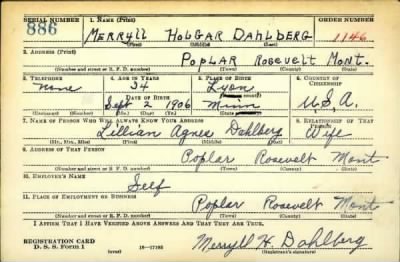 SERIAL NUMBER 1. NAME (Print) ORDER NUMBER
886 MERRYLL HOLGAR DAHLBERG 1146
(First) (Middle) (Last)
2. ADDRESS (Print)
POPLAR ROSEVELT MONT.
(Number and street or R. F. D. number) (Town) (County) (State)
3. TELEPHONE 4. AGE IN YEARS 5. PLACE OF BIRTH 6. COUNTRY OF CITIZENSHIP
None 34 Lyon
DATE OF BIRTH (Town or county)
Sept 2 1906 Minn U.S.A.
(Exchange) (No.) (Mo.) (Day) (Yr.) (State or country)
7. NAME OF PERSON WHO WILL ALWAYS KNOW YOUR ADDRESS 8. RELATIONSHIP OF THAT PERSON
Lillian Agnes Dahlberg Wife
(Mr., Mrs., Miss) (First) (Middle) (Last)
9. ADDRESS OF THAT PERSON
Poplar Rosevelt Mont
(Number and street or R. F. D. number) (Town) (County) (State)
10. EMPLOYER'S NAME
Self
11. PLACE OF EMPLOYMENT OR BUSINESS
Poplar Rosevelt Mont
(Number and street or R. F. D. number) (Town) (County) (State)
I AFFIRM THAT I HAVE VERIFIED ABOVE ANSWERS AND THAT THEY ARE TRUE.
REGISTRATION CARD
D. S. S. Form 1 (over) Merryll H. Dahlberg
(Registrant's signature)